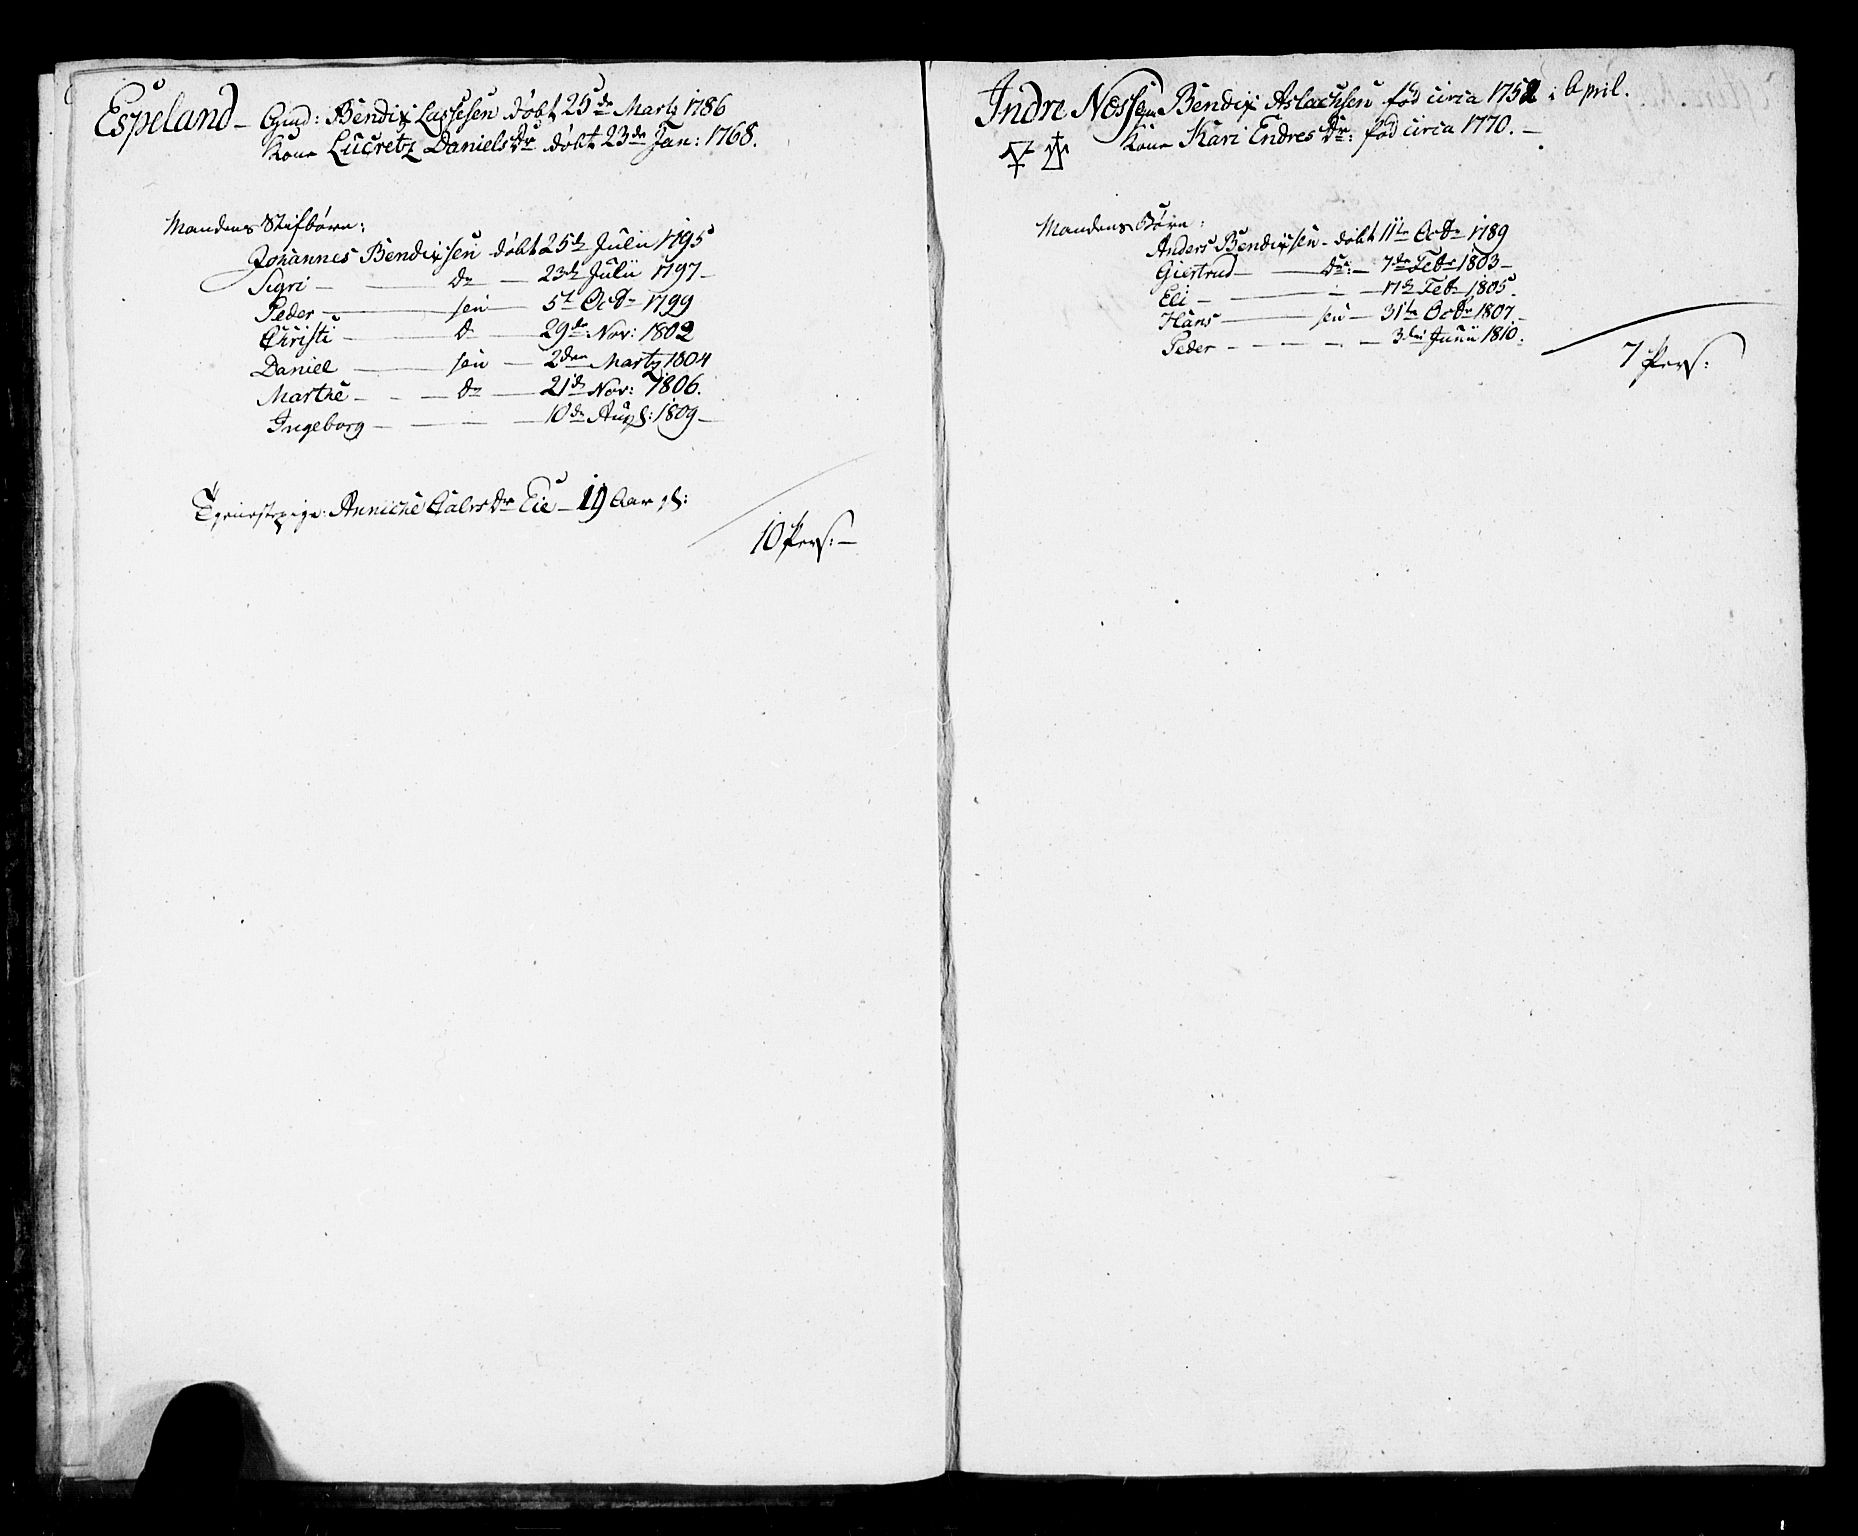 Espeland – Gmd: Bendix Lassesen døbt 25de Martz 1786
Kone Lucretz Daniels Dr døbt 23de Jan: 1768.
Mandens Stifbørn:
Johannes Bendixsen døbt 25de Julii 1795
Sigri — Dr — 23de Julii 1797 –
Peder — sen — 5te Octr 1799
Christi — Dr — 29de Nov: 1802
Daniel — sen — 2den Martz 1804
Marthe — Dr — 21de Nov: 1806.
Ingeborg — — — 10de Aug: 1809 –
Tjenestepige: Anniche Dr Eie – 19 Aar gl:
10 Pers: –
Indre Ness Bendix Aslachsen fød circa 1752 i April.
Kone Kari Endres Dr: fød circa 1770. –
Mandens Børn:
Anders Bendixsen – døbt 11te Octr 1789
Giertrud — Dr: — 7de Febr 1803 –
Eli — — — 17de Febr 1805.
Hans — sen — 31te Octr 1807. –
Peder — — — 3die Junii 1810.
7 Pers: